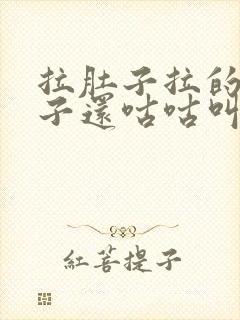 拉肚子拉的
子還咕咕叫
紅菩提子